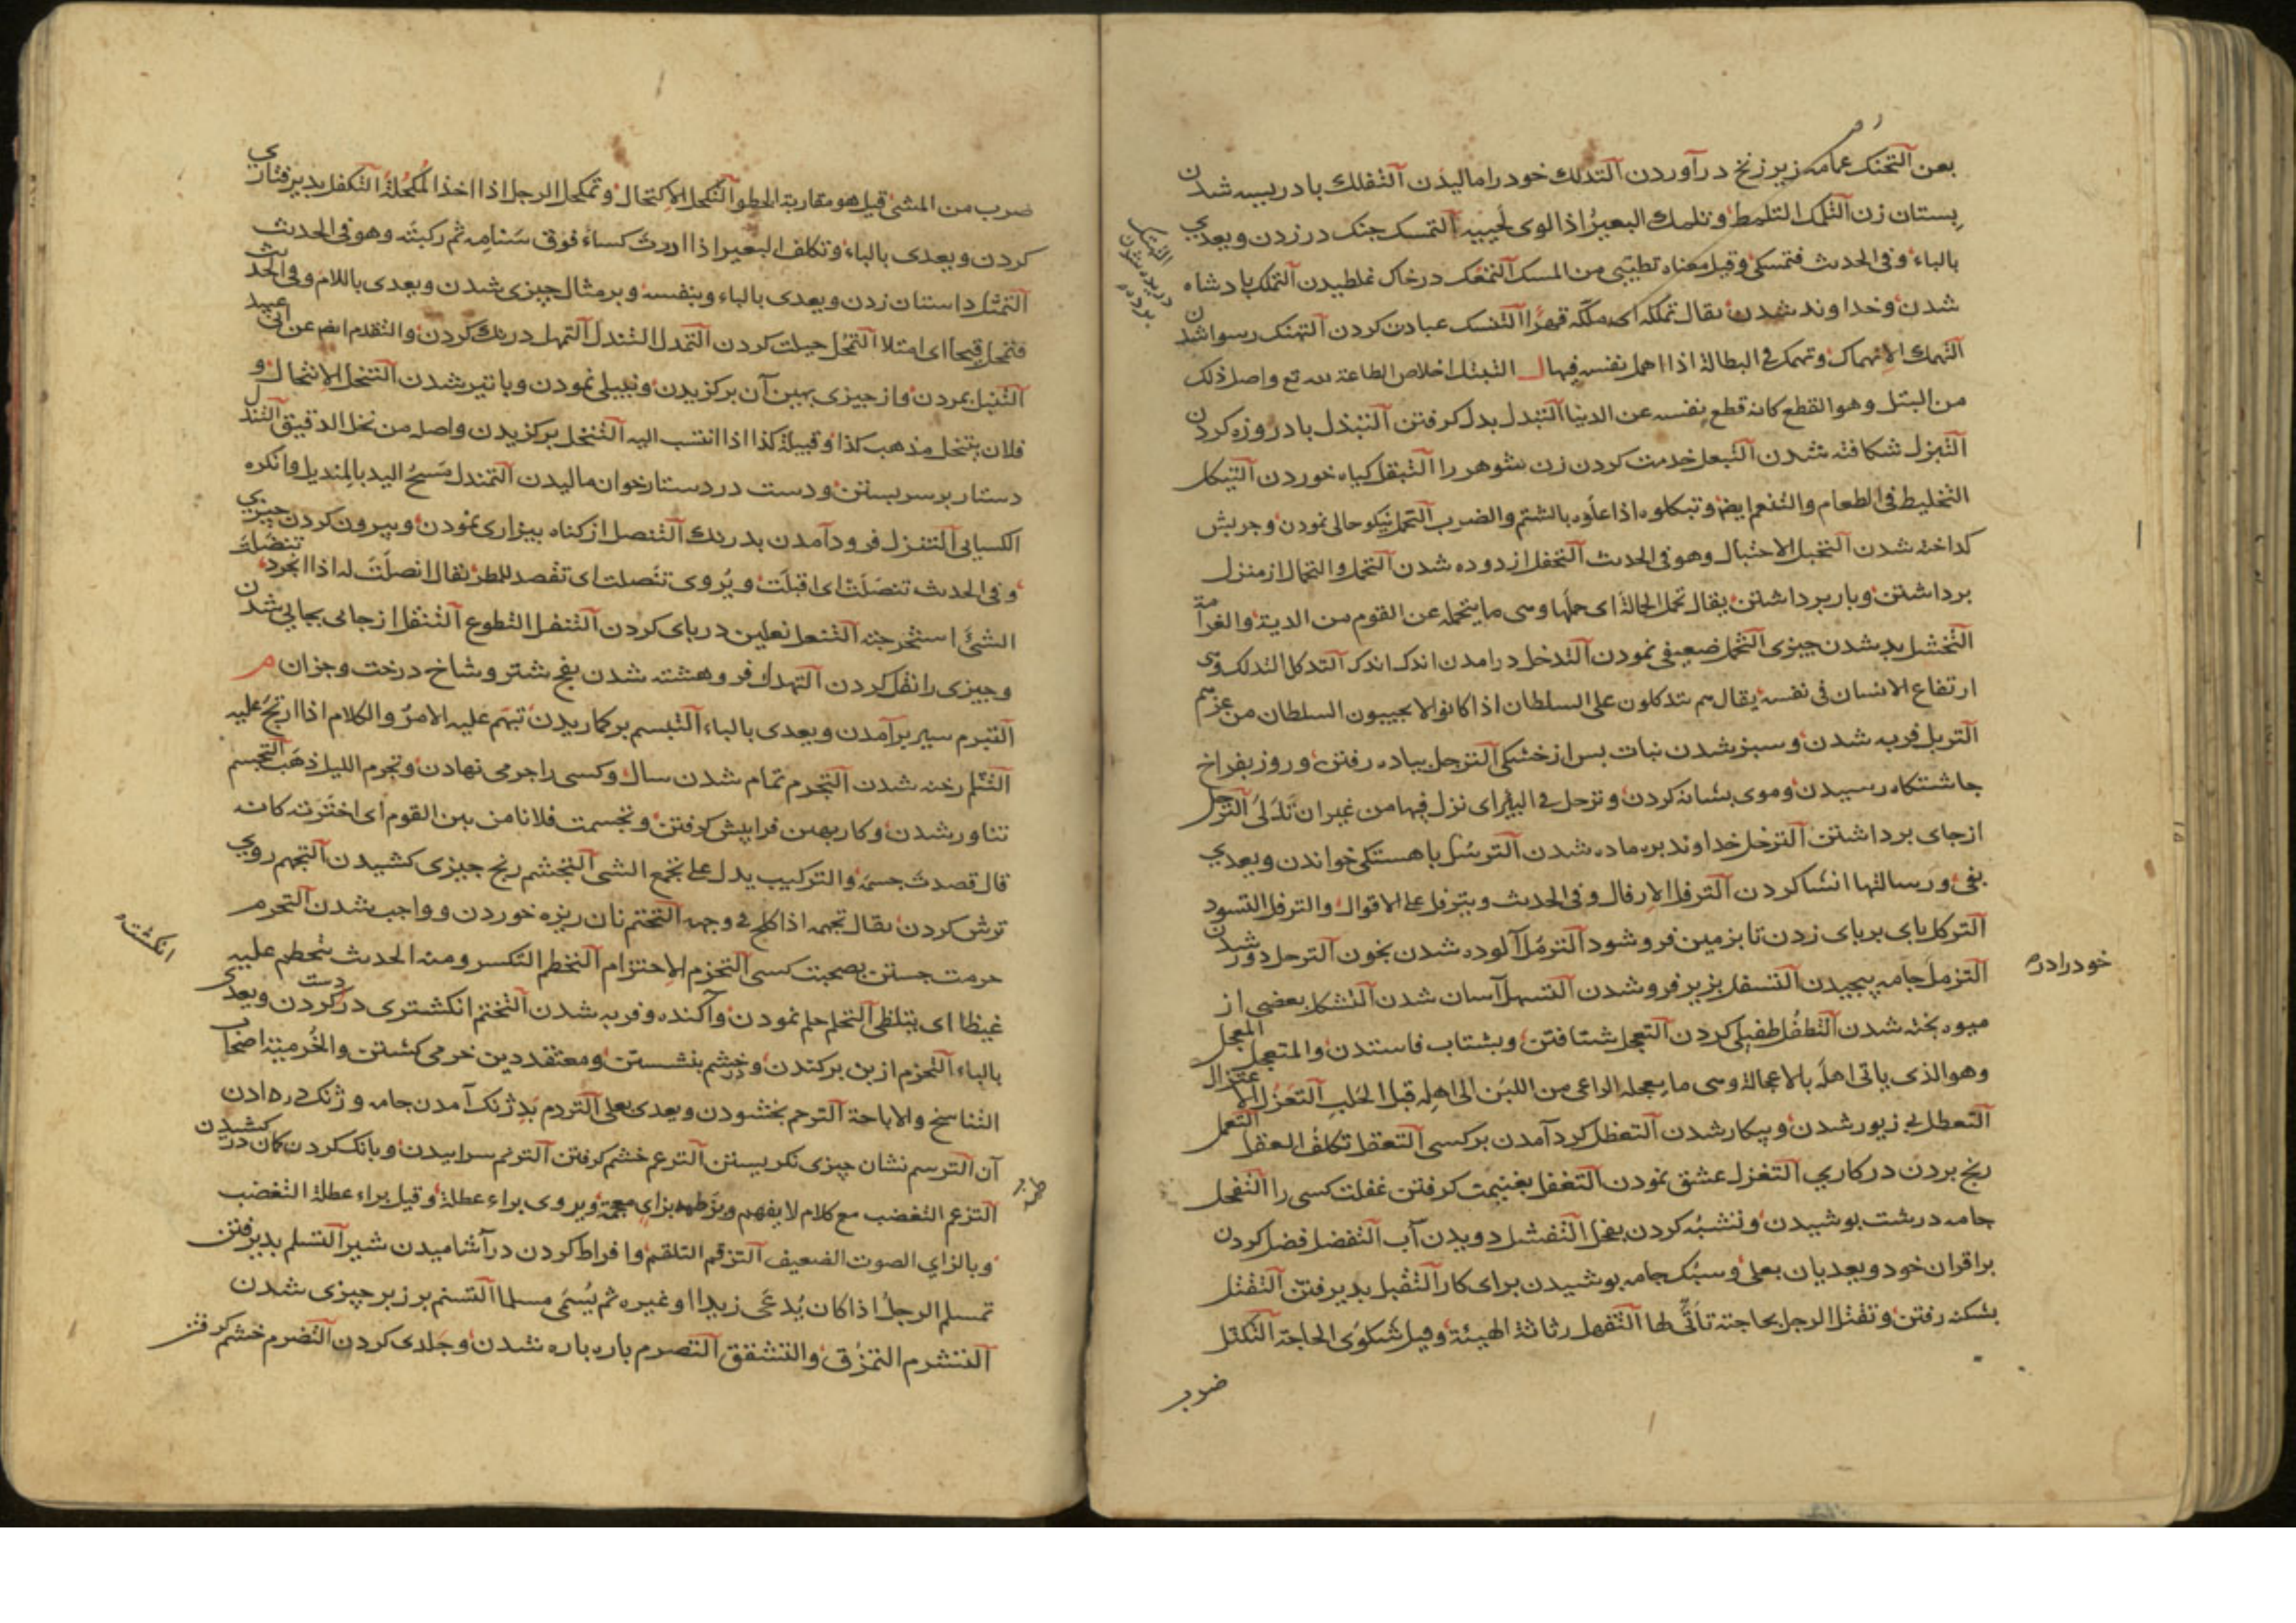 بعن التحنك عمامه زیر زنخ درآوردن التدلك خود را مالیدن التفلك بادریسه شدن
پستان زن التلمك التلمظ وتلمك البعیر اذا لوی لحییه التمسك چنك در زدن ویعدی
بالباء وفی الحدیث فتمسكی وقیل معناه تطیّبی من المسك التمعك در خاك غلطیدن التملك پادشاه
شدن وخداوند شدن یقال تملكه ای ملكه قهرا التنسك عبادت كردن التهتك رسوا شدن
التهمك الانهماك وتهمك فی البطالة اذا اهمل نفسه فیها ل التبتل اخلاص الطاعة لله تع واصل ذلك
من البتل وهو القطع كانه قطع نفسه عن الدنیا التبدل بدل كرفتن التبذل بادروزه كردن
التبزل شكافته شدن التبعل خدمت كردن زن شوهر را التبقل كیاه خوردن التبكل
التخلیط فی الطعام والتنعم ایض وتبكلوه اذا علوه بالشتم والضرب التجمل نیكو حالی نمودن وچربش
كداخته شدن التحبل الاحتبال وهو فی الحدیث التحفل ازدوده شدن التحمل والتحمال از منزل
برداشتن وبار برداشتن یقال تحمل الحمالة ای حملها وهی ما یتحمله عن القوم من الدیة والغرامة
التخشل بد شدن چیزی التخمل ضعیفی نمودن التدخل درامدن اندك اندك التدكل التدلل وهی
ارتفاع الانسان فی نفسه یقال هم یتدكلون علی السلطان اذا كانوا لا یجیبون السلطان من عزهم
التربل فربه شدن وسبز شدن نبات پس از خشكی الترجل پیاده رفتن وروز بفراخ
چاشتكاه رسیدن وموی بشانه كردن وترجل فی البئر ای نزل فیها من غیر ان تدلی الترحل
ازجای برداشتن الترخل خداوند بره ماده شدن الترسل باهستكی خواندن ویعدی
بفی ورسالتها انشا كردن الترفل الارفال وفی الحدیث ویترفل علی الاقوال والترفل التسود
التركل پای بر پای زدن تا بزمین فرو شود الترمل آلوده شدن بخون التزحل دور شدن
خود را در
التزمل جامه پیچیدن التسفل بزیر فرو شدن التسهل آسان شدن التشكل بعضی از
میوه پخته شدن التطفل طفیلی كردن التعجل شتافتن وبشتاب فاستدن والمتعجل المعجل
وهو الذی یاتی اهله بالاعجالة وهی ما یعجله الراعی من اللبن الی اهله قبل الحلب التعزل الاعتزال
التعطل بی زیور شدن وبیكار شدن التعظل كرد آمدن بر كسی التعقل تكلف العقل التعمل
رنج بردن در كاری التغزل عشق نمودن التغفل بغنیمت كرفتن غفلت كسی را التفحل
جامه درشت پوشیدن وتشبه كردن بفحل التفشل دویدن آب التفضل فضل كردن
بر اقران خود ویعدیان بعلی وسبك جامه پوشیدن برای كار التقبل پدیرفتن التقتل
بشكنه رفتن وتقتل الرجل بحاجته تأتّی لها التقهل رثاثة الهیئة وقیل شكوی الحاجة التكتل
ضرب
التهتك دریده شدن پرده
ضرب من المشی قیل هو مقاربة الخطو التكحل الاكتحال وتمكحل الرجل اذا اخذ المكحلة التكفل پدیرفتاری
كردن ویعدی بالباء وتكفل البعیر اذا ادرت كساء فوق سنامه ثم ركبته وهو فی الحدیث
التمثل داستان زدن ویعدی بالباء وبنفسه وبر مثال چیزی شدن ویعدی باللام وفی الحدیث
فتمحل قیحا ای امتلا التمحل حیلت كردن التمدل التندل التمهل درنك كردن والتقدم ایض عن ابی عبید
التنبل بمردن واز چیزی بهین آن بركزیدن ونبیلی نمودن وبا تیر شدن التنحل الانتحال و
فلان ینتحل مذهب كذا وقبیلة كذا اذا انتسب الیه التنخل بركزیدن واصله من نخل الدقیق التندل
دستار بر سر بستن ودست در دستار خوان مالیدن التمندل مسح الید بالمندیل وانكره
الكسایی التنزل فرود آمدن بدرنك التنصل از كناه بیزاری نمودن وبیرون كردن چیزی
وفی الحدیث تنصلت ای اقبلت ویروی تنصلت ای تقصد للمطر یقال انصلت له اذا انجرد تنصلت
الشئ استخرجته التنعل نعلین در پای كردن التنفل التطوع التنقل از جائی بجایی شدن
وچیزی را نقل كردن التهدل فرو هشته شدن بفج شتر وشاخ درخت وجز ان م
التبرم سیر برآمدن ویعدی بالباء التبسم بركماریدن تبهم علیه الامر والكلام اذا ارتج علیه
التثلم رخنه شدن التجرم تمام شدن سال وكسی را جرمی نهادن وتجرم اللیل ذهب التجسم
تناور شدن وكار بهین فرا پیش كرفتن وتجسمت فلانا من بین القوم ای اخترته كانه
قال قصدت جسمه والتركیب یدل علی تجمع الشی التجشم رنج چیزی كشیدن التجهم روی
ترش كردن یقال تجهمه اذا كلح فی وجهه التحتم نان ریزه خوردن وواجب شدن التحرم
انكشت
حرمت جستن بصحبت كسی التحزم الاحتزام التحطم التكسر ومنه الحدیث یتحطم علیه
غیظا ای یتلظی التحلم حلم نمودن وآكنده وفربه شدن التختم انكشتری در دست كردن ویعدی
بالباء التخرم از بن بركندن ودر خشم بنشستن ومعتقد دین خرمی كشتن والخرمیة اصحاب
التناسخ والاباحة الترحم بخشودن ویعدی بعلی التردم پدژنك آمدن جامه وژنك دردادن
آن الترسم نشان چیزی نكریستن الترعم خشم كرفتن الترنم سراییدن وبانك كردن كمان در كشیدن
التزعم التغضب مع كلام لا یفهم وبزطمه بزای معجمة ویروی براء عطلة وقیل براء عطلة التغضب
وبالزای الصوت الضعیف التزقم التلقم وافراط كردن در آشامیدن شیر التسلم پدیرفتن
تمسلم الرجل اذا كان یدعی زیدا او غیره ثم یسمی مسلما التسنم بر زبر چیزی شدن
التشرم التمزق والتشقق التصرم پاره پاره شدن وجلدی كردن التضرم خشم كرفتن